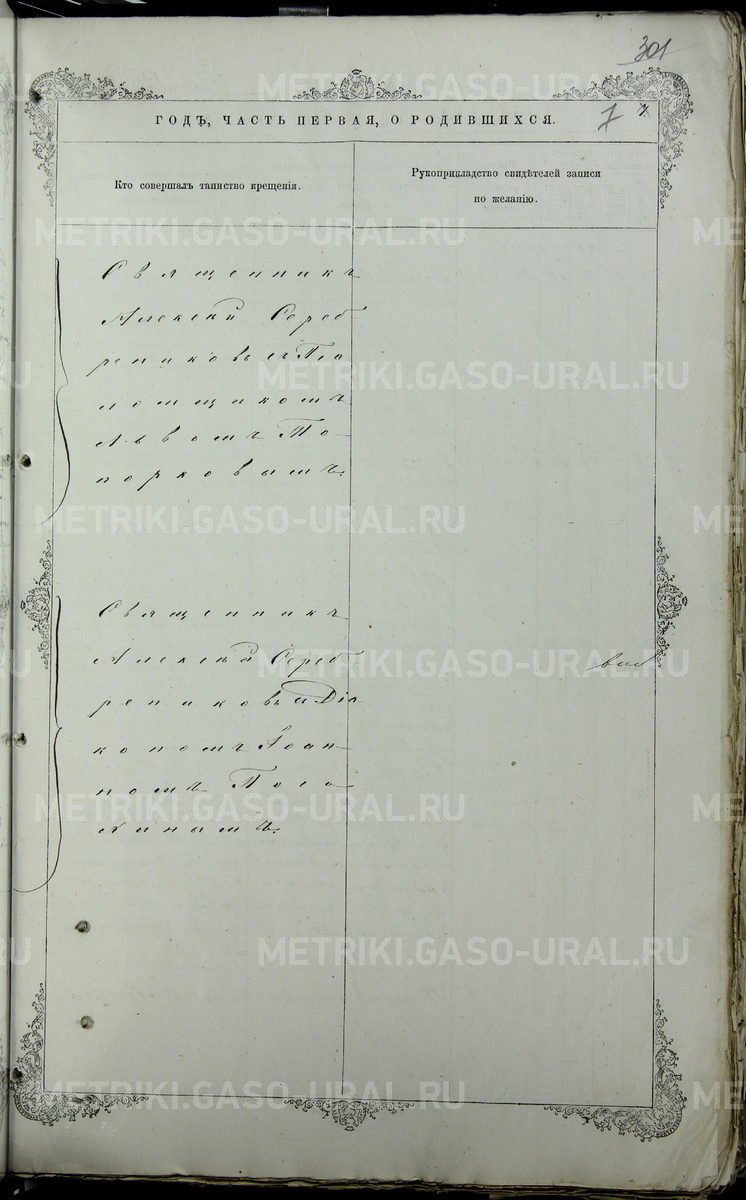 301
ГОДЪ, ЧАСТЬ ПЕРВАЯ, О РОДИВШИХСЯ. 7
Кто совершалъ таинство крещенія.
Рукоприкладство свидѣтелей записи
по желанію.
Священникъ
Алексѣй Сереб
рениковъ съ Пса
ломщикомъ
Львомъ То-
порковымъ.
Священникъ
Алексѣй Сереб
рениковъ съ Діа
кономъ Іоан
номъ
METRIKI.GASO-URAL.RU